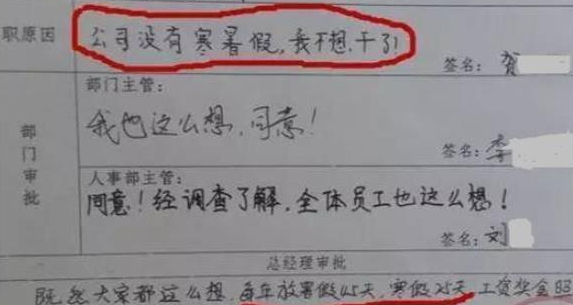 职原因
公司没有寒暑假,我不想干了!
签名:贺
部门主管:
我也这么想,同意!
签名:李
部门审批
人事部主管:
同意!经调查了解,全体员工也这么想!
签名:刘
总经理审批
既然大家都这么想,每年放暑假45天,寒假25天,工资奖金照